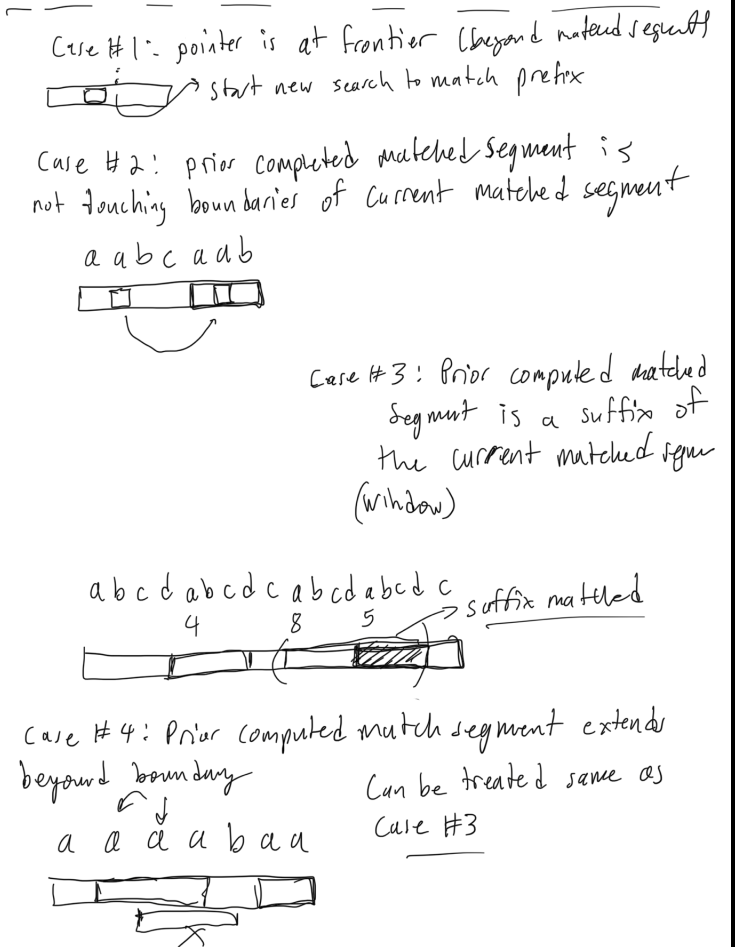 Case #1: pointer is at frontier (beyond matched segments)
start new search to match prefix
Case #2: prior completed matched segment is
not touching boundaries of current matched segment
a a b c a a b
Case #3: Prior computed matched
segment is a suffix of
the current matched segme
(window)
a b c d a b c d c a b c d a b c d c
4 8 5
suffix matched
Case #4: Prior computed match segment extends
beyound boundary
Can be treated same as
Case #3
a a a a b a a